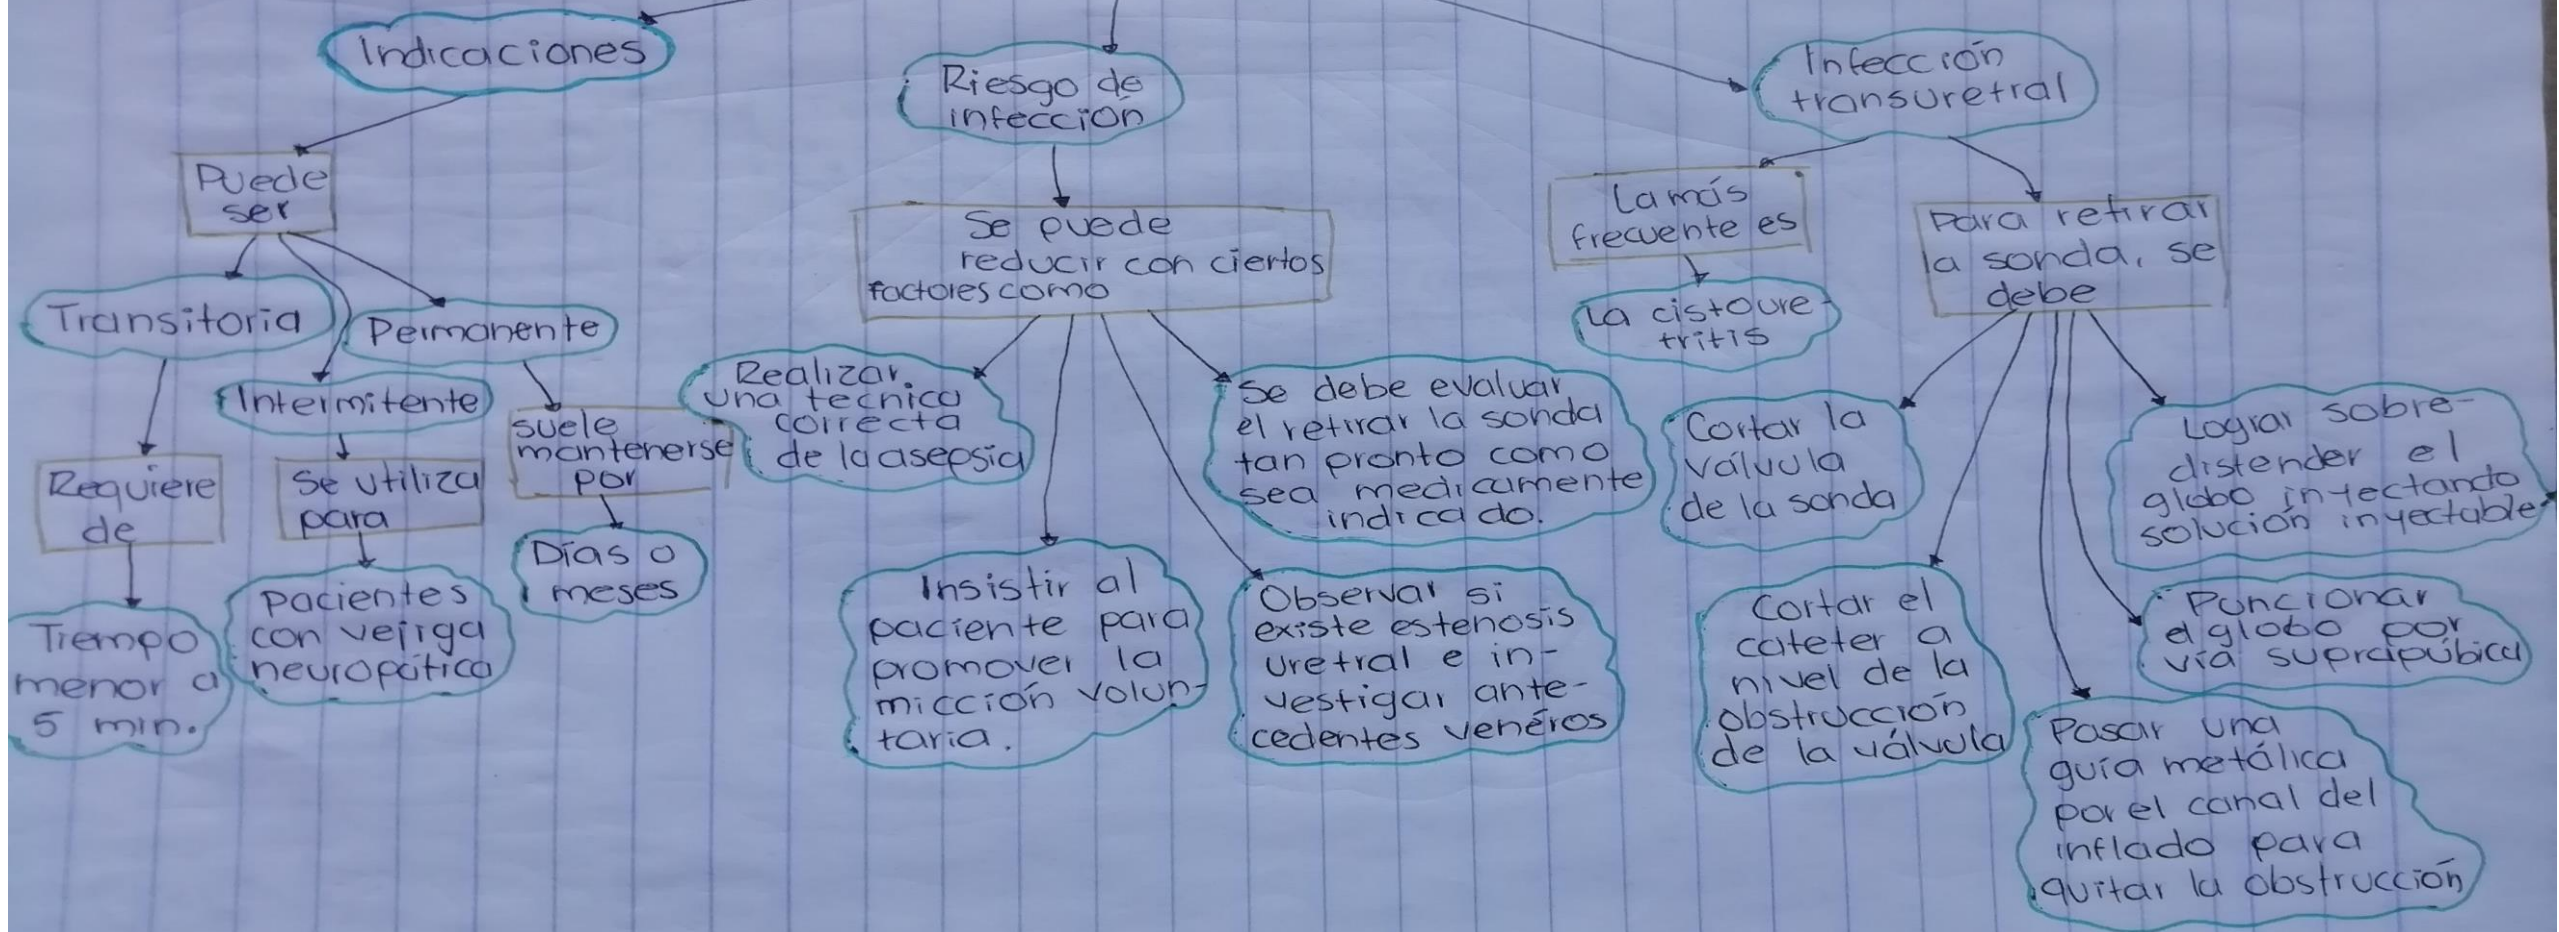 Indicaciones
Puede
ser
Transitoria
Requiere
de
Tiempo
menor a
5 min.
Intermitente
Se utiliza
para
pacientes
con vejiga
neuropática
Permanente
suele
mantenerse
por
Días o
meses
Riesgo de
infección
Se puede
reducir con ciertos
factores como
Realizar
una tecnica
correcta
de la asepsia
Insistir al
paciente para
promover la
micción volun-
taria.
Observar si
existe estenosis
uretral e in-
vestigar ante-
cedentes venéros
Se debe evaluar
el retirar la sonda
tan pronto como
sea medicamente
indicado.
Infección
transuretral
La más
frecuente es
La cistoure-
tritis
Para retirar
la sonda, se
debe
Cortar la
válvula
de la sonda
Cortar el
cateter a
nivel de la
obstrucción
de la válvula
Pasar una
guía metálica
por el canal del
inflado para
quitar la obstrucción
Puncionar
el globo por
vía suprapúbica
Lograr sobre-
distender el
globo inyectando
solución inyectable